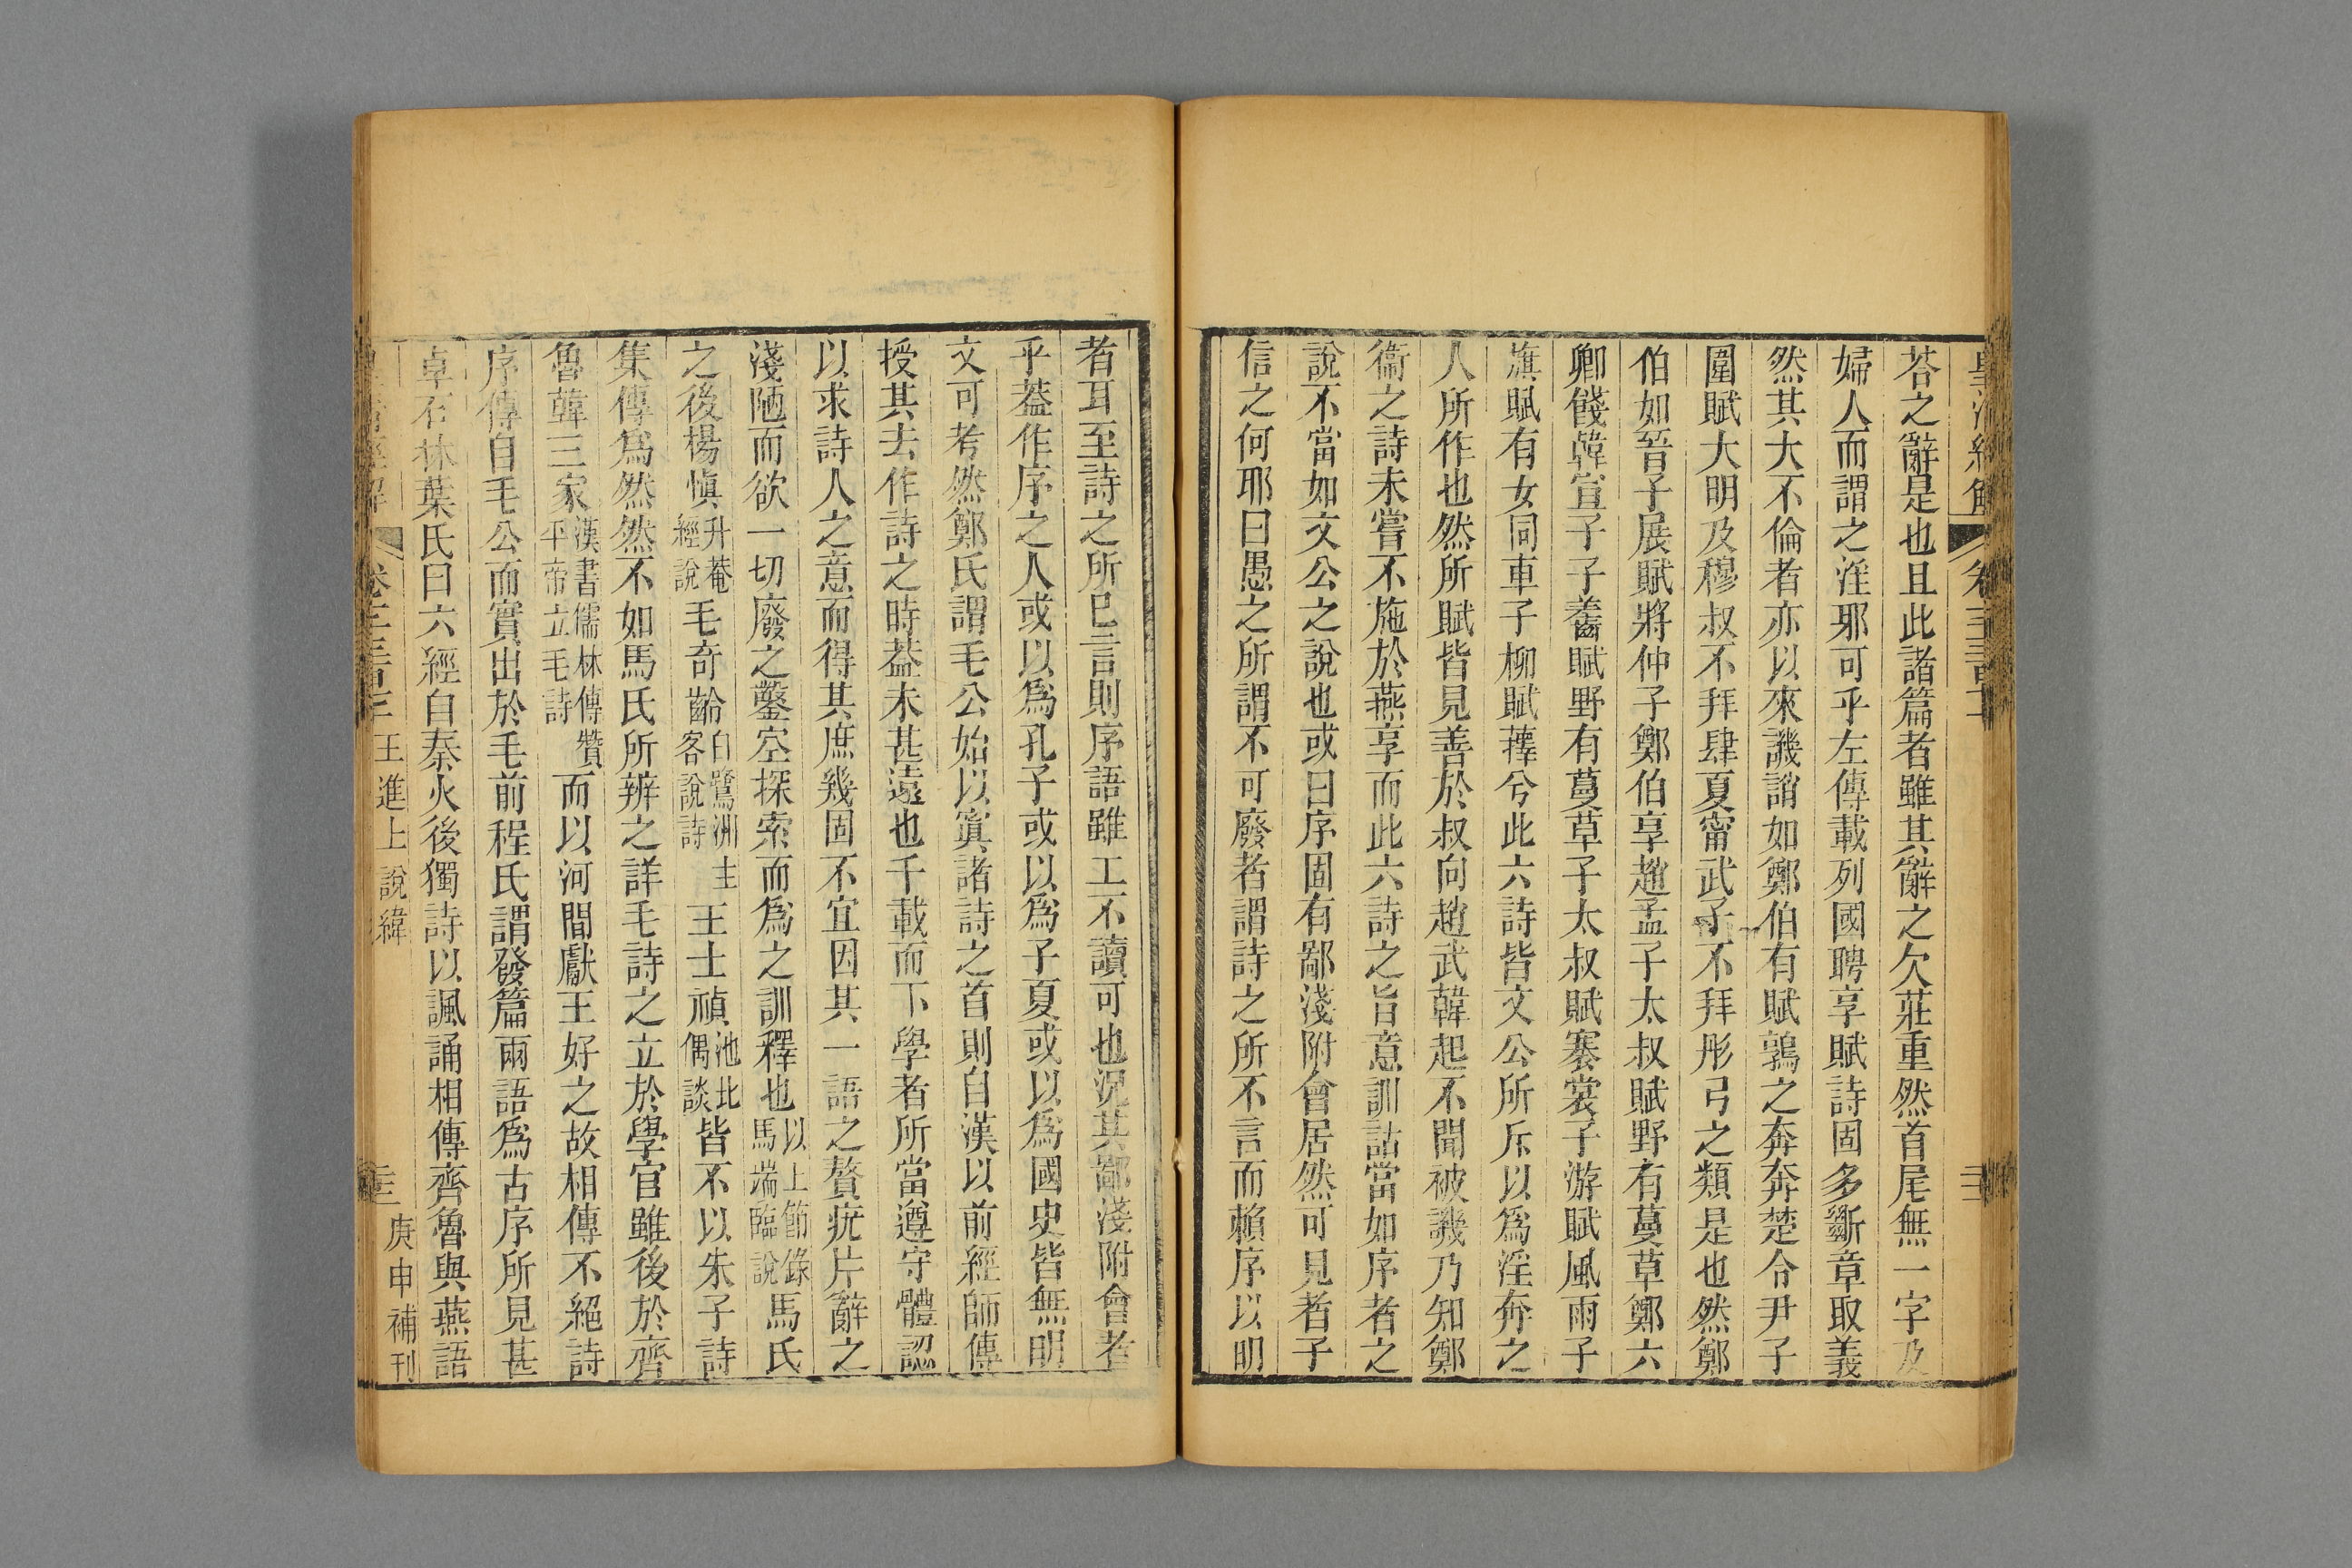 荅之辭是也且此諸篇者雖其辭之欠莊重然首尾無一字及
婦人而謂之淫邪可乎左傳載列國聘享賦詩固多斷章取義
然其大不倫者亦以來譏誚如鄭伯有賦鶉之奔奔楚令尹子
圍賦大明及穆叔不拜肆夏甯武子不拜彤弓之類是也然鄭
伯如晉子展賦將仲子鄭伯享趙孟子太叔賦野有蔓草鄭六
卿餞韓宣子子齹賦野有蔓草子太叔賦褰裳子游賦風雨子
旗賦有女同車子柳賦蘀兮此六詩皆文公所斥以爲淫奔之
人所作也然所賦皆見善於叔向趙武韓起不聞被譏乃知鄭
衞之詩未嘗不施於燕享而此六詩之旨意訓詁當如序者之
說不當如文公之說也或曰序固有鄙淺附會居然可見者子
信之何耶曰愚之所謂不可廢者謂詩之所不言而賴序以明
者耳至詩之所已言則序語雖工不讀可也況其鄙淺附會者
乎葢作序之人或以爲孔子或以爲子夏或以爲國史皆無明
文可考然鄭氏謂毛公始以寘諸詩之首則自漢以前經師傳
授其去作詩之時葢未甚遠也千載而下學者所當遵守體認
以求詩人之意而得其庶幾固不宜因其一語之贅疣片辭之
淺陋而欲一切廢之鑿空探索而爲之訓釋也以上節錄馬端臨說馬氏
之後楊愼升菴經說毛奇齡白鷺洲主客說詩王士禎池北偶談皆不以朱子詩
集傳爲然然不如馬氏所辨之詳毛詩之立於學官雖後於齊
魯韓三家漢書儒林傳贊平帝立毛詩而以河間獻王好之故相傳不絕詩
序傳自毛公而實出於毛前程氏謂發篇兩語爲古序所見甚
卓石林葉氏曰六經自秦火後獨詩以諷誦相傳齊魯與燕語
王進士說緯
庚申補刊